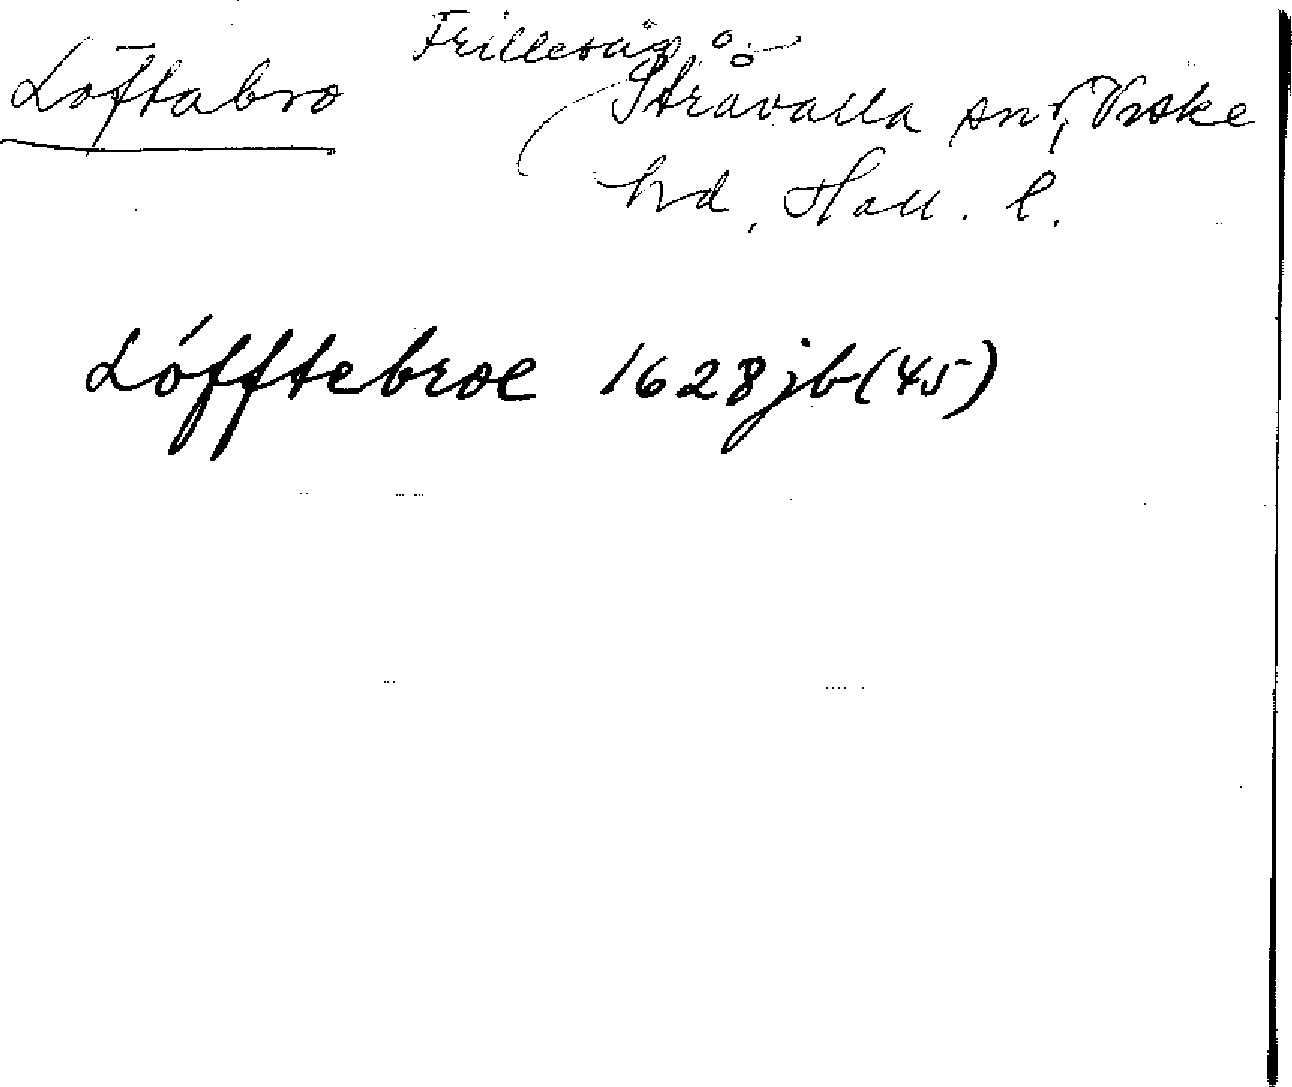 Löftabro Frillesås
Stråvalla snr, Viske
hd, Hall. l.
Löfftebroe 1628 jb (45)